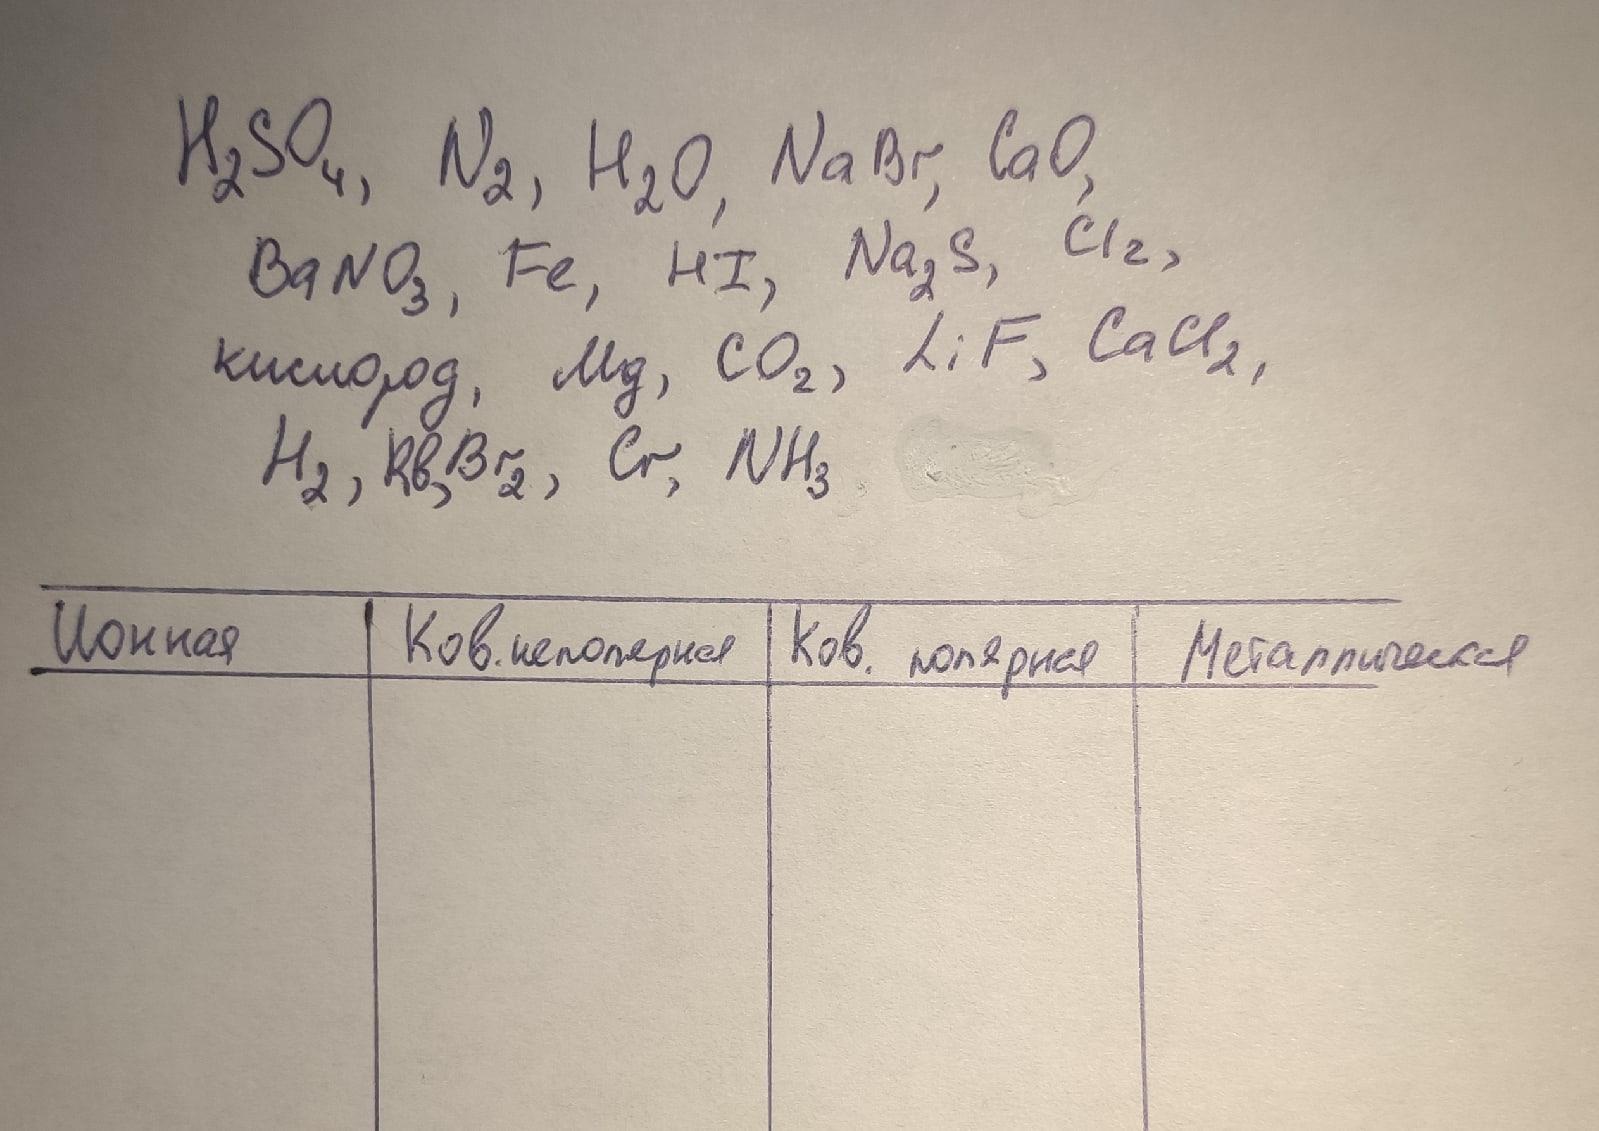 H₂SO₄, N₂, H₂O, NaBr, CaO,
BaNO₃, Fe, HI, Na₂S, Cl₂,
кислород, Mg, CO₂, LiF, CaCl₂,
H₂, Rb, Br₂, Cr, NH₃
Ионная Ков. неполярная Ков. полярная Металлическая